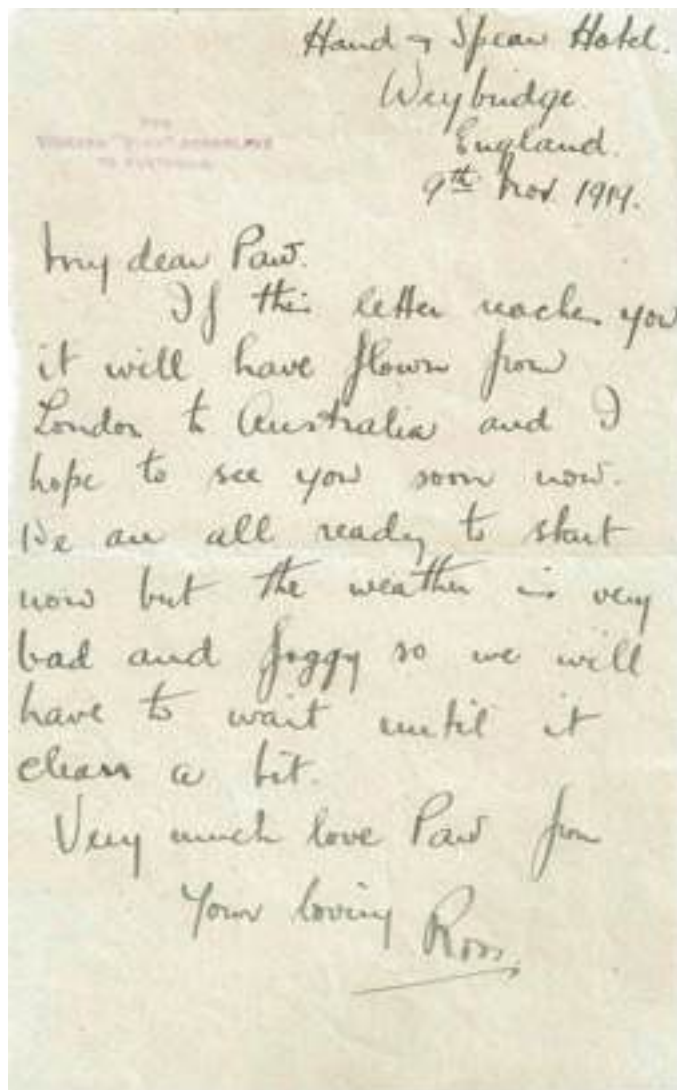 Hand & Spear Hotel.
Weybridge
England.
9th Nov 1919.
VICKERS "VIMY" AEROPLANE
TO AUSTRALIA
My dear Paw.
If this letter reaches you
it will have flown from
London to Australia and I
hope to see you soon now.
We are all ready to start
now but the weather is very
bad and foggy so we will
have to wait until it
clears a bit.
Very much love Paw from
Your loving Ross.